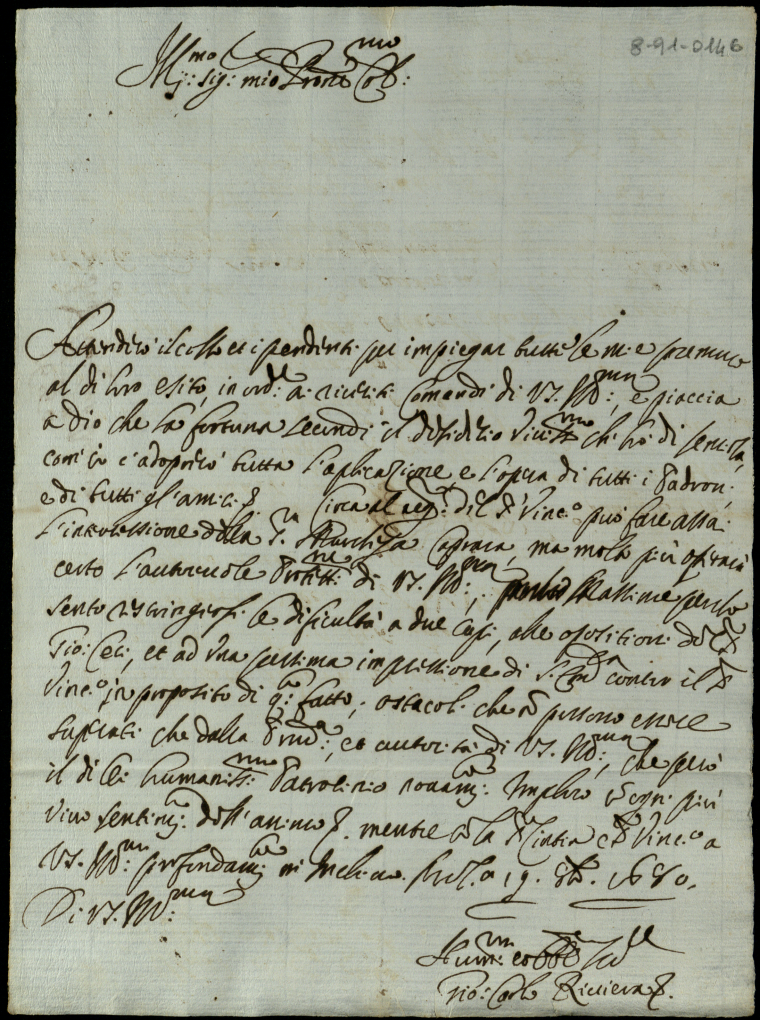 8-91-0146
Ill:mo Sig: mio Prone Coll:mo
Attenderò il collo et i pendenti per impiegar tutte le mie premure
al di loro esito, in ord.e a riveriti Comandi di V.S. Ill:ma, e piaccia
a Dio che la fortuna secondi il desiderio viviss:mo che hò di servirla,
com'io c'adoprerò tutta l'aplicazione, e l'opera di tutti i Padroni,
e di tutti gl'amici. Circa al neg: del S. Vinc.o può fare assai
l'intercessione della S.ra Marchesa Caprara, ma molto più opererà
certo l'autorevole Protett:ne di V.S. Ill:ma, Massime perche
sento ristringersi le dificultà a due Capi, alle opositioni del S.
Gio: Ceti, et ad una pessima impressione di S. Em.a contro il S.
Vinc.o in proposito di q: fatto, ostacoli che ñ possono essere
superati che dalla Prud:a, et autorità di V.S. Ill:ma, che però
il di lei humaniss:mo Patrocinio novam:te Imploro cõ ogni più
vivo sentim:to dell'animo, mentre cõ la S. Cintia e S. Vinc.o a
V.S. Ill:ma profondam:te m'Inchino. 19. 8bre. 1680.
Di V.S. Ill:ma
Hum:mo et Obb:mo Ser.re
Gio: Carlo Riviera